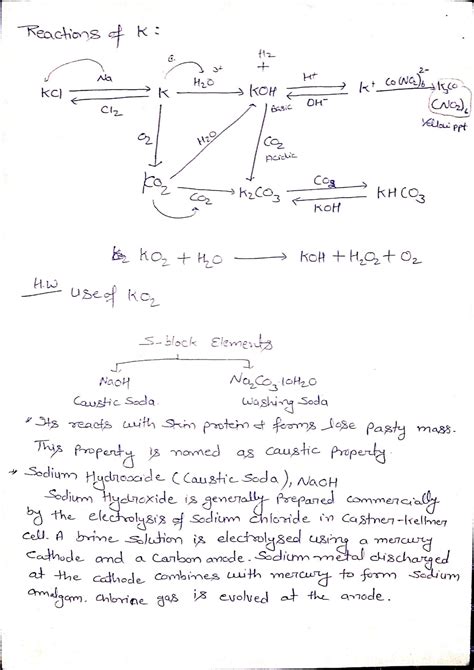 Reactions of K :
H2
+
KCl Na Cl2 K H2O KOH H+ OH- K+ K3CO
(NO2)6
Basic
Yellow ppt
O2 H2O CO2
Acidic
KO2 CO2 K2CO3 CO2 KOH KHCO3
KO2 + H2O → KOH + H2O2 + O2
H.W Use of KO2
S-block Elements
NaOH Na2CO3·10H2O
Caustic Soda Washing Soda
Its reacts with Skin protein & forms lose pasty mass.
This property is named as caustic property.
→ Sodium Hydroxide (Caustic Soda), NaOH
Sodium Hydroxide is generally Prepared commercially
by the electrolysis of Sodium Chloride in Castner-Kellner
cell. A brine Solution is electrolysed using a mercury
Cathode and a Carbon anode. Sodium metal discharged
at the cathode combines with mercury to form Sodium
amalgam. Chlorine gas is evolved at the anode.